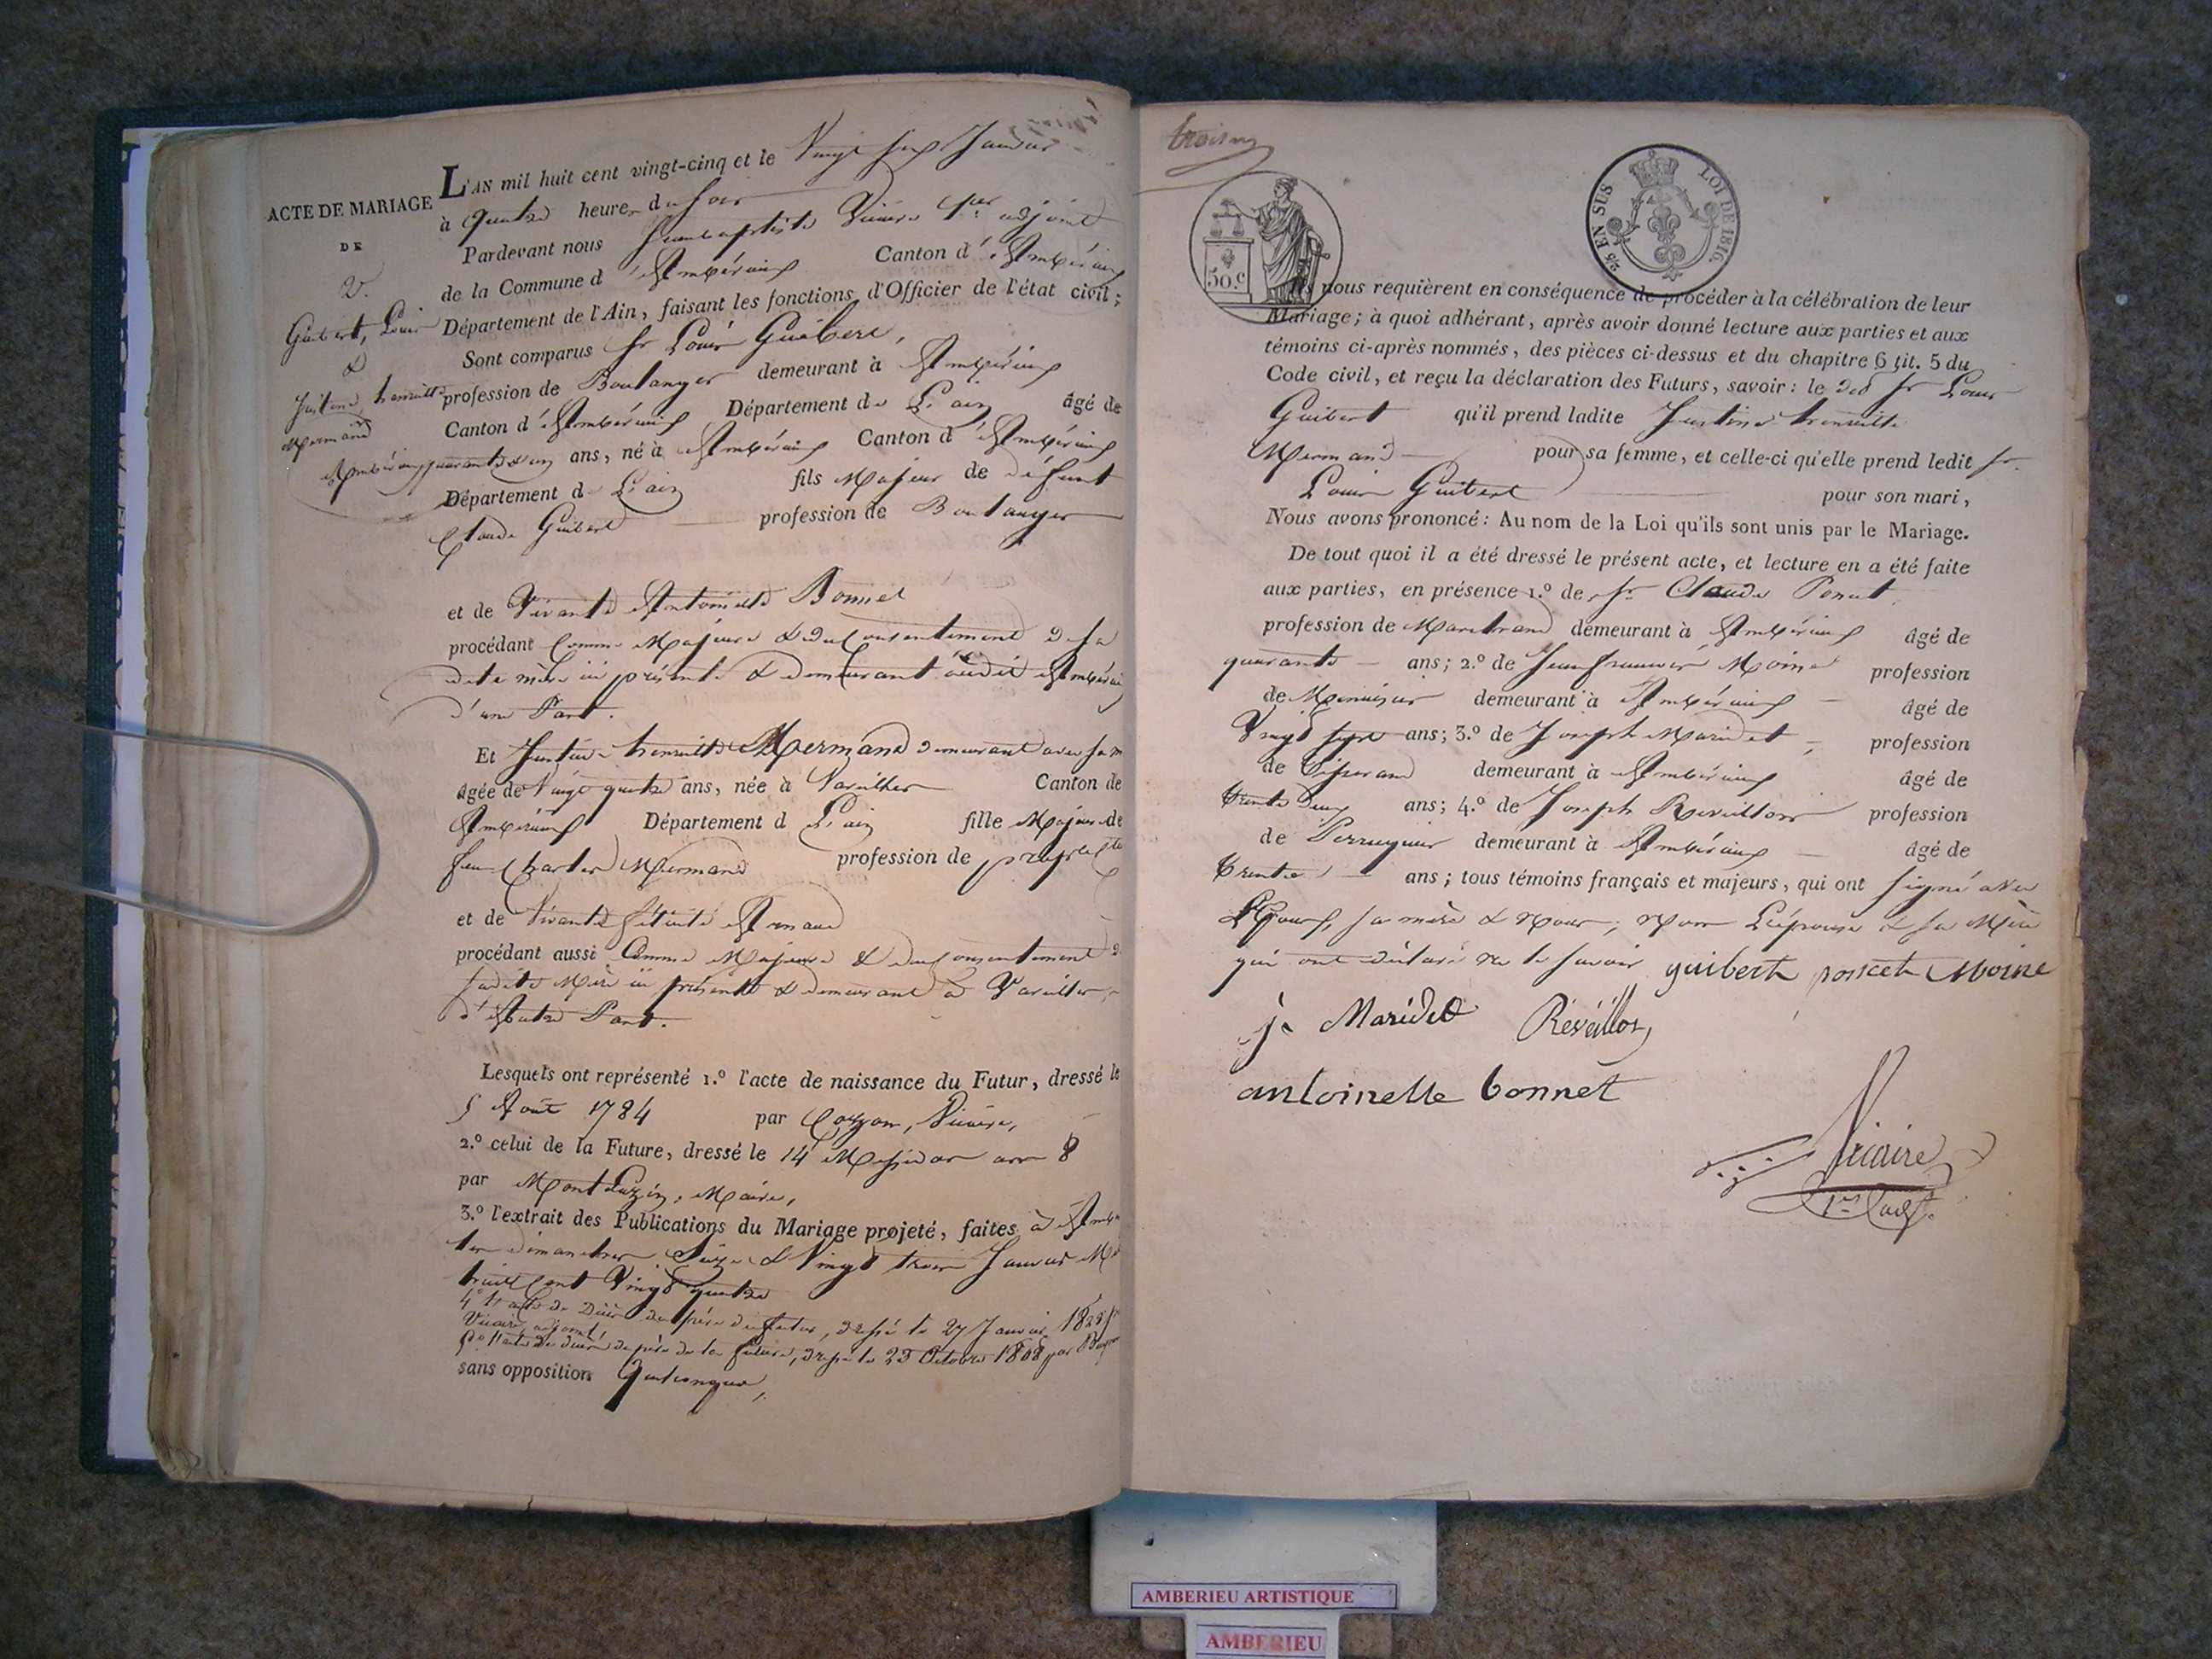 L'AN mil huit cent vingt-cinq et le Vingt six Janvier
ACTE DE MARIAGE
DE
à quatre heures du soir
Pardevant nous Jean baptiste Vicaire 1er adjoint
de la Commune d'Ambérieux Canton d'Ambérieux
Département de l'Ain, faisant les fonctions d'Officier de l'état civil;
Guibert, Louis
&
Justine, henriette
Mermand
Ambérieux
Sont comparus Sr Louis Guibert,
profession de Boulanger demeurant à Ambérieux
Canton d'Ambérieux Département de L'ain âgé de
quarante un ans, né à Ambérieux Canton d'Ambérieux
Département de L'ain fils Majeur de défunt
Claude Guibert profession de Boulanger
et de Vivante Antoinette Bonnet
procédant Comme Majeur & du Consentement de sa
dite mère ici présente & demeurant audit Ambérieux
d'une Part.
Et Justine henriette Mermand demeurant avec sa m
âgée de Vingt quatre ans, née à Vareilles Canton de
Ambérieux Département d L'ain fille Majeure de
feu Charles Mermand profession de propre
et de Vivante Armand
procédant aussi Comme Majeure & du consentement de
sadite Mère ici présente & demeurant à Vareilles,
d'Autre Part.
Lesquels ont représenté 1.º l'acte de naissance du Futur, dressé le
5 Août 1784 par Cozon, Vicaire,
2.º celui de la Future, dressé le 14 Messidor an 8
par MontLuzin, Maire,
3.º l'extrait des Publications du Mariage projeté, faites à Ambé
les dimanches Seize & Vingt trois Janvier M
huit Cent Vingt quatre
4º l'acte de Décès du père du futur, dressé le 27 Janvier
Vicaire, adjoint,
5º l'acte de décès du père de la future, dressé le 23 Octobre 1808 par
sans opposition Quelconque,
EN SUS
LOI DE 1816.
50.c
Ils nous requièrent en conséquence de procéder à la célébration de leur
Mariage; à quoi adhérant, après avoir donné lecture aux parties et aux
témoins ci-après nommés, des pièces ci-dessus et du chapitre 6 tit. 5 du
Code civil, et reçu la déclaration des Futurs, savoir: le dit Sr Louis
Guibert qu'il prend ladite Justine henriette
Mermand pour sa femme, et celle-ci qu'elle prend ledit Sr
Louis Guibert pour son mari,
Nous avons prononcé: Au nom de la Loi qu'ils sont unis par le Mariage.
De tout quoi il a été dressé le présent acte, et lecture en a été faite
aux parties, en présence 1.º de Sr Claude Poncet,
profession de Marchand demeurant à Ambérieux âgé de
quarante ans; 2.º de Jean françois Moine profession
de Menuisier demeurant à Ambérieux âgé de
Vingt sept ans; 3.º de Joseph Maridet, profession
de Tisserand demeurant à Ambérieux âgé de
trente deux ans; 4.º de Joseph Reveillon profession
de Perruquier demeurant à Ambérieux âgé de
trente ans; tous témoins français et majeurs, qui ont signé avec
L'Epoux, sa mère & Nous, Non L'épouse & sa Mère
qui ont déclaré ne le savoir guibert poncet Moine
j. Maridet Réveillon
antoinette bonnet
Vicaire
1er adj.
AMBERIEU ARTISTIQUE
AMBERIEU